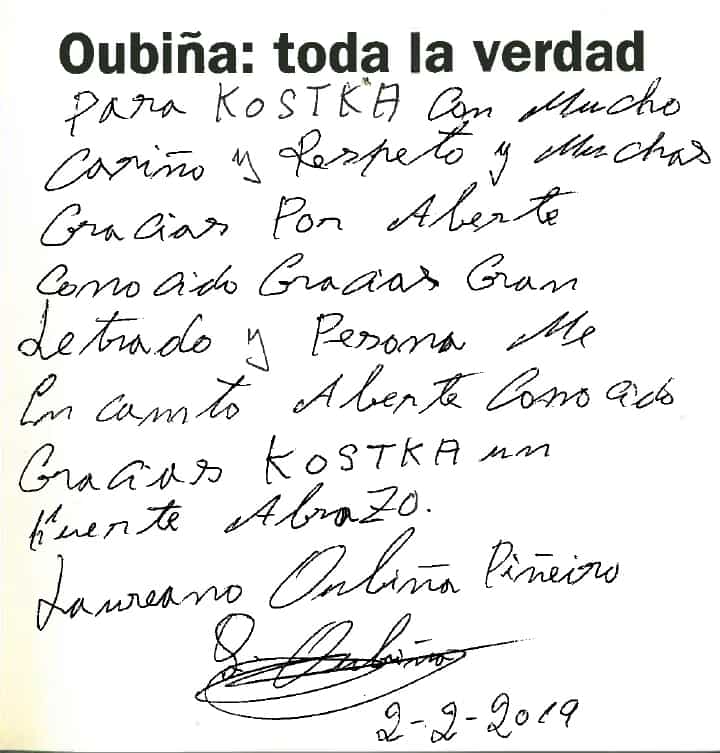 Oubiña: toda la verdad
Para KOSTKA Con Mucho
Cariño y Respeto y Muchas
Gracias Por Aberte
Conocido Gracias Gran
Letrado y Persona Me
Encamto Aberte Conocido
Gracias KOSTKA un
Fuerte AbraZo.
Laureano Oubiña Piñeiro
L. Oubiña
2-2-2019